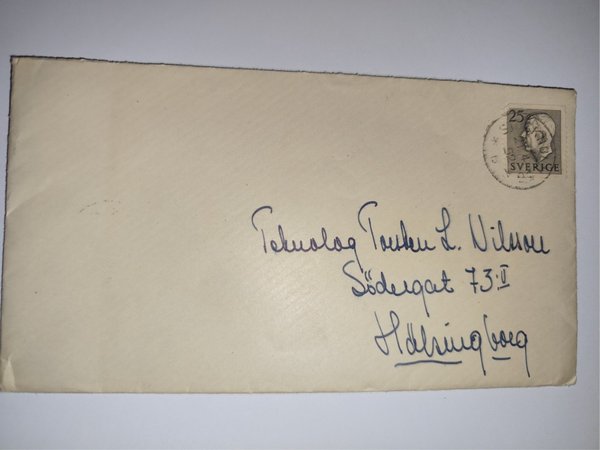 25
SVERIGE
Teknolog Torsten L. Nilsson
Södergat 73 II
Hälsingborg